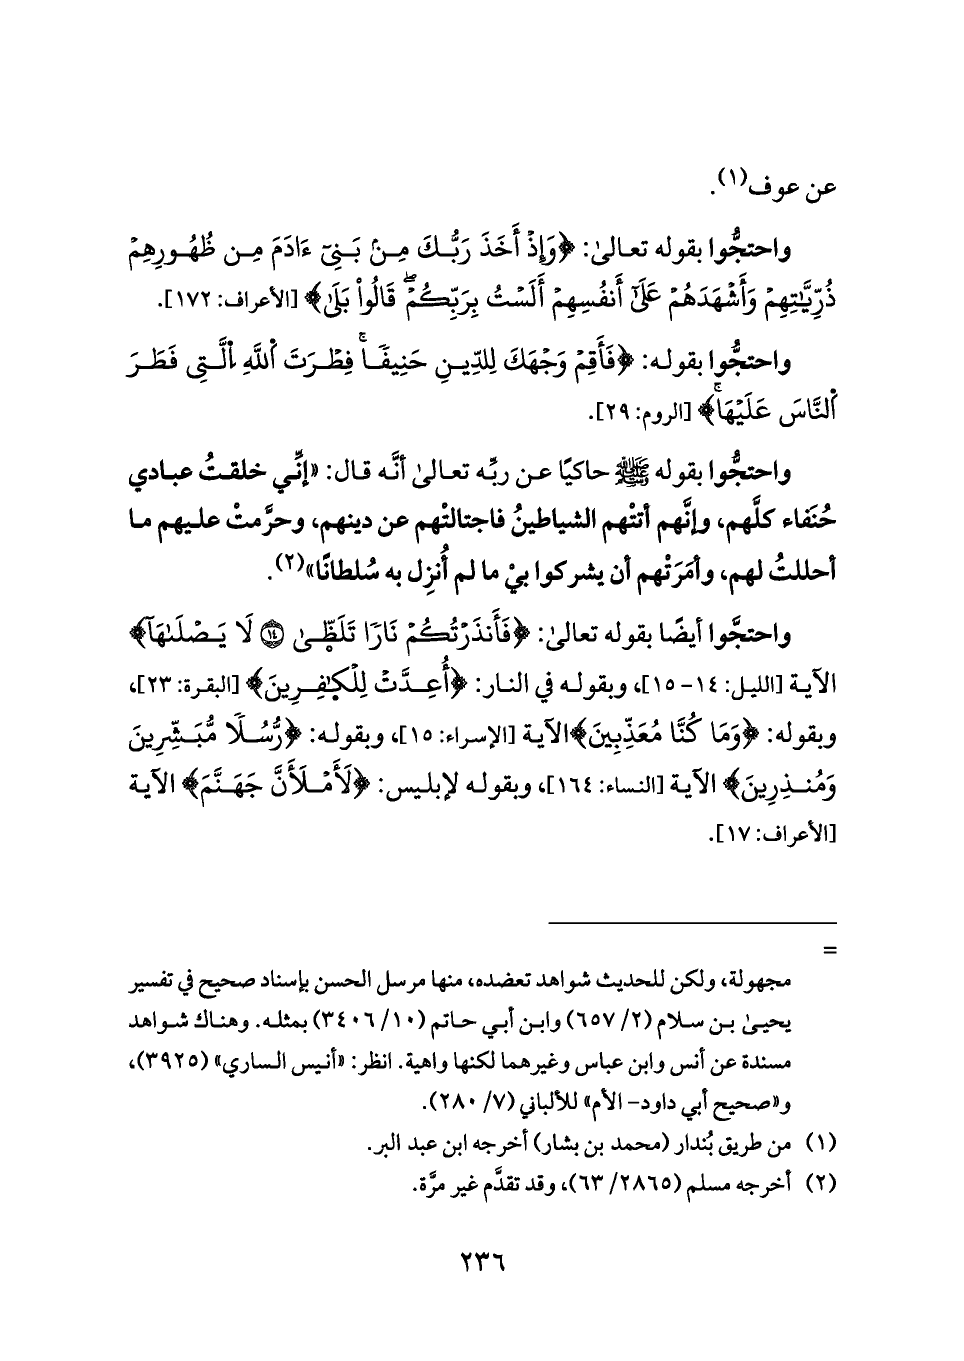 عن عوف(١).
واحتجُّوا بقوله تعالىٰ: ﴿وَإِذْ أَخَذَ رَبُّكَ مِنۢ بَنِىٓ ءَادَمَ مِن ظُهُورِهِمْ
ذُرِّيَّٰتِهِمْ وَأَشْهَدَهُمْ عَلَىٰٓ أَنفُسِهِمْ أَلَسْتُ بِرَبِّكُمْۖ قَالُوا۟ بَلَىٰ﴾ [الأعراف: ١٧٢].
واحتجُّوا بقوله: ﴿فَأَقِمْ وَجْهَكَ لِلدِّينِ حَنِيفًاۚ فِطْرَتَ ٱللَّهِ ٱلَّتِى فَطَرَ
ٱلنَّاسَ عَلَيْهَاۚ﴾ [الروم: ٢٩].
واحتجُّوا بقوله ﷺ حاكيًا عن ربِّه تعالىٰ أنَّه قال: «إنِّي خلقتُ عبادي
حُنَفاء كلَّهم، وإنَّهم أتتْهم الشياطينُ فاجتالتْهم عن دينهم، وحرَّمتْ عليهم ما
أحللتُ لهم، وأمَرَتْهم أن يشركوا بيْ ما لم أُنزِل به سُلطانًا»(٢).
واحتجَّوا أيضًا بقوله تعالىٰ: ﴿فَأَنذَرْتُكُمْ نَارًا تَلَظَّىٰ ١٤ لَا يَصْلَىٰهَآ﴾
الآية [الليل: ١٤- ١٥]، وبقوله في النار: ﴿أُعِدَّتْ لِلْكَٰفِرِينَ﴾ [البقرة: ٢٣]،
وبقوله: ﴿وَمَا كُنَّا مُعَذِّبِينَ﴾الآية [الإسراء: ١٥]، وبقوله: ﴿رُّسُلًا مُّبَشِّرِينَ
وَمُنذِرِينَ﴾ الآية [النساء: ١٦٤]، وبقوله لإبليس: ﴿لَأَمْلَأَنَّ جَهَنَّمَ﴾ الآية
[الأعراف: ١٧].
=
مجهولة، ولكن للحديث شواهد تعضده، منها مرسل الحسن بإسناد صحيح في تفسير
يحيىٰ بن سلام (٢/ ٦٥٧) وابن أبي حاتم (١٠/ ٣٤٠٦) بمثله. وهناك شواهد
مسندة عن أنس وابن عباس وغيرهما لكنها واهية. انظر: «أنيس الساري» (٣٩٢٥)،
و«صحيح أبي داود- الأم» للألباني (٧/ ٢٨٠).
(١) من طريق بُندار (محمد بن بشار) أخرجه ابن عبد البر.
(٢) أخرجه مسلم (٢٨٦٥/ ٦٣)، وقد تقدَّم غير مرَّة.
٢٣٦